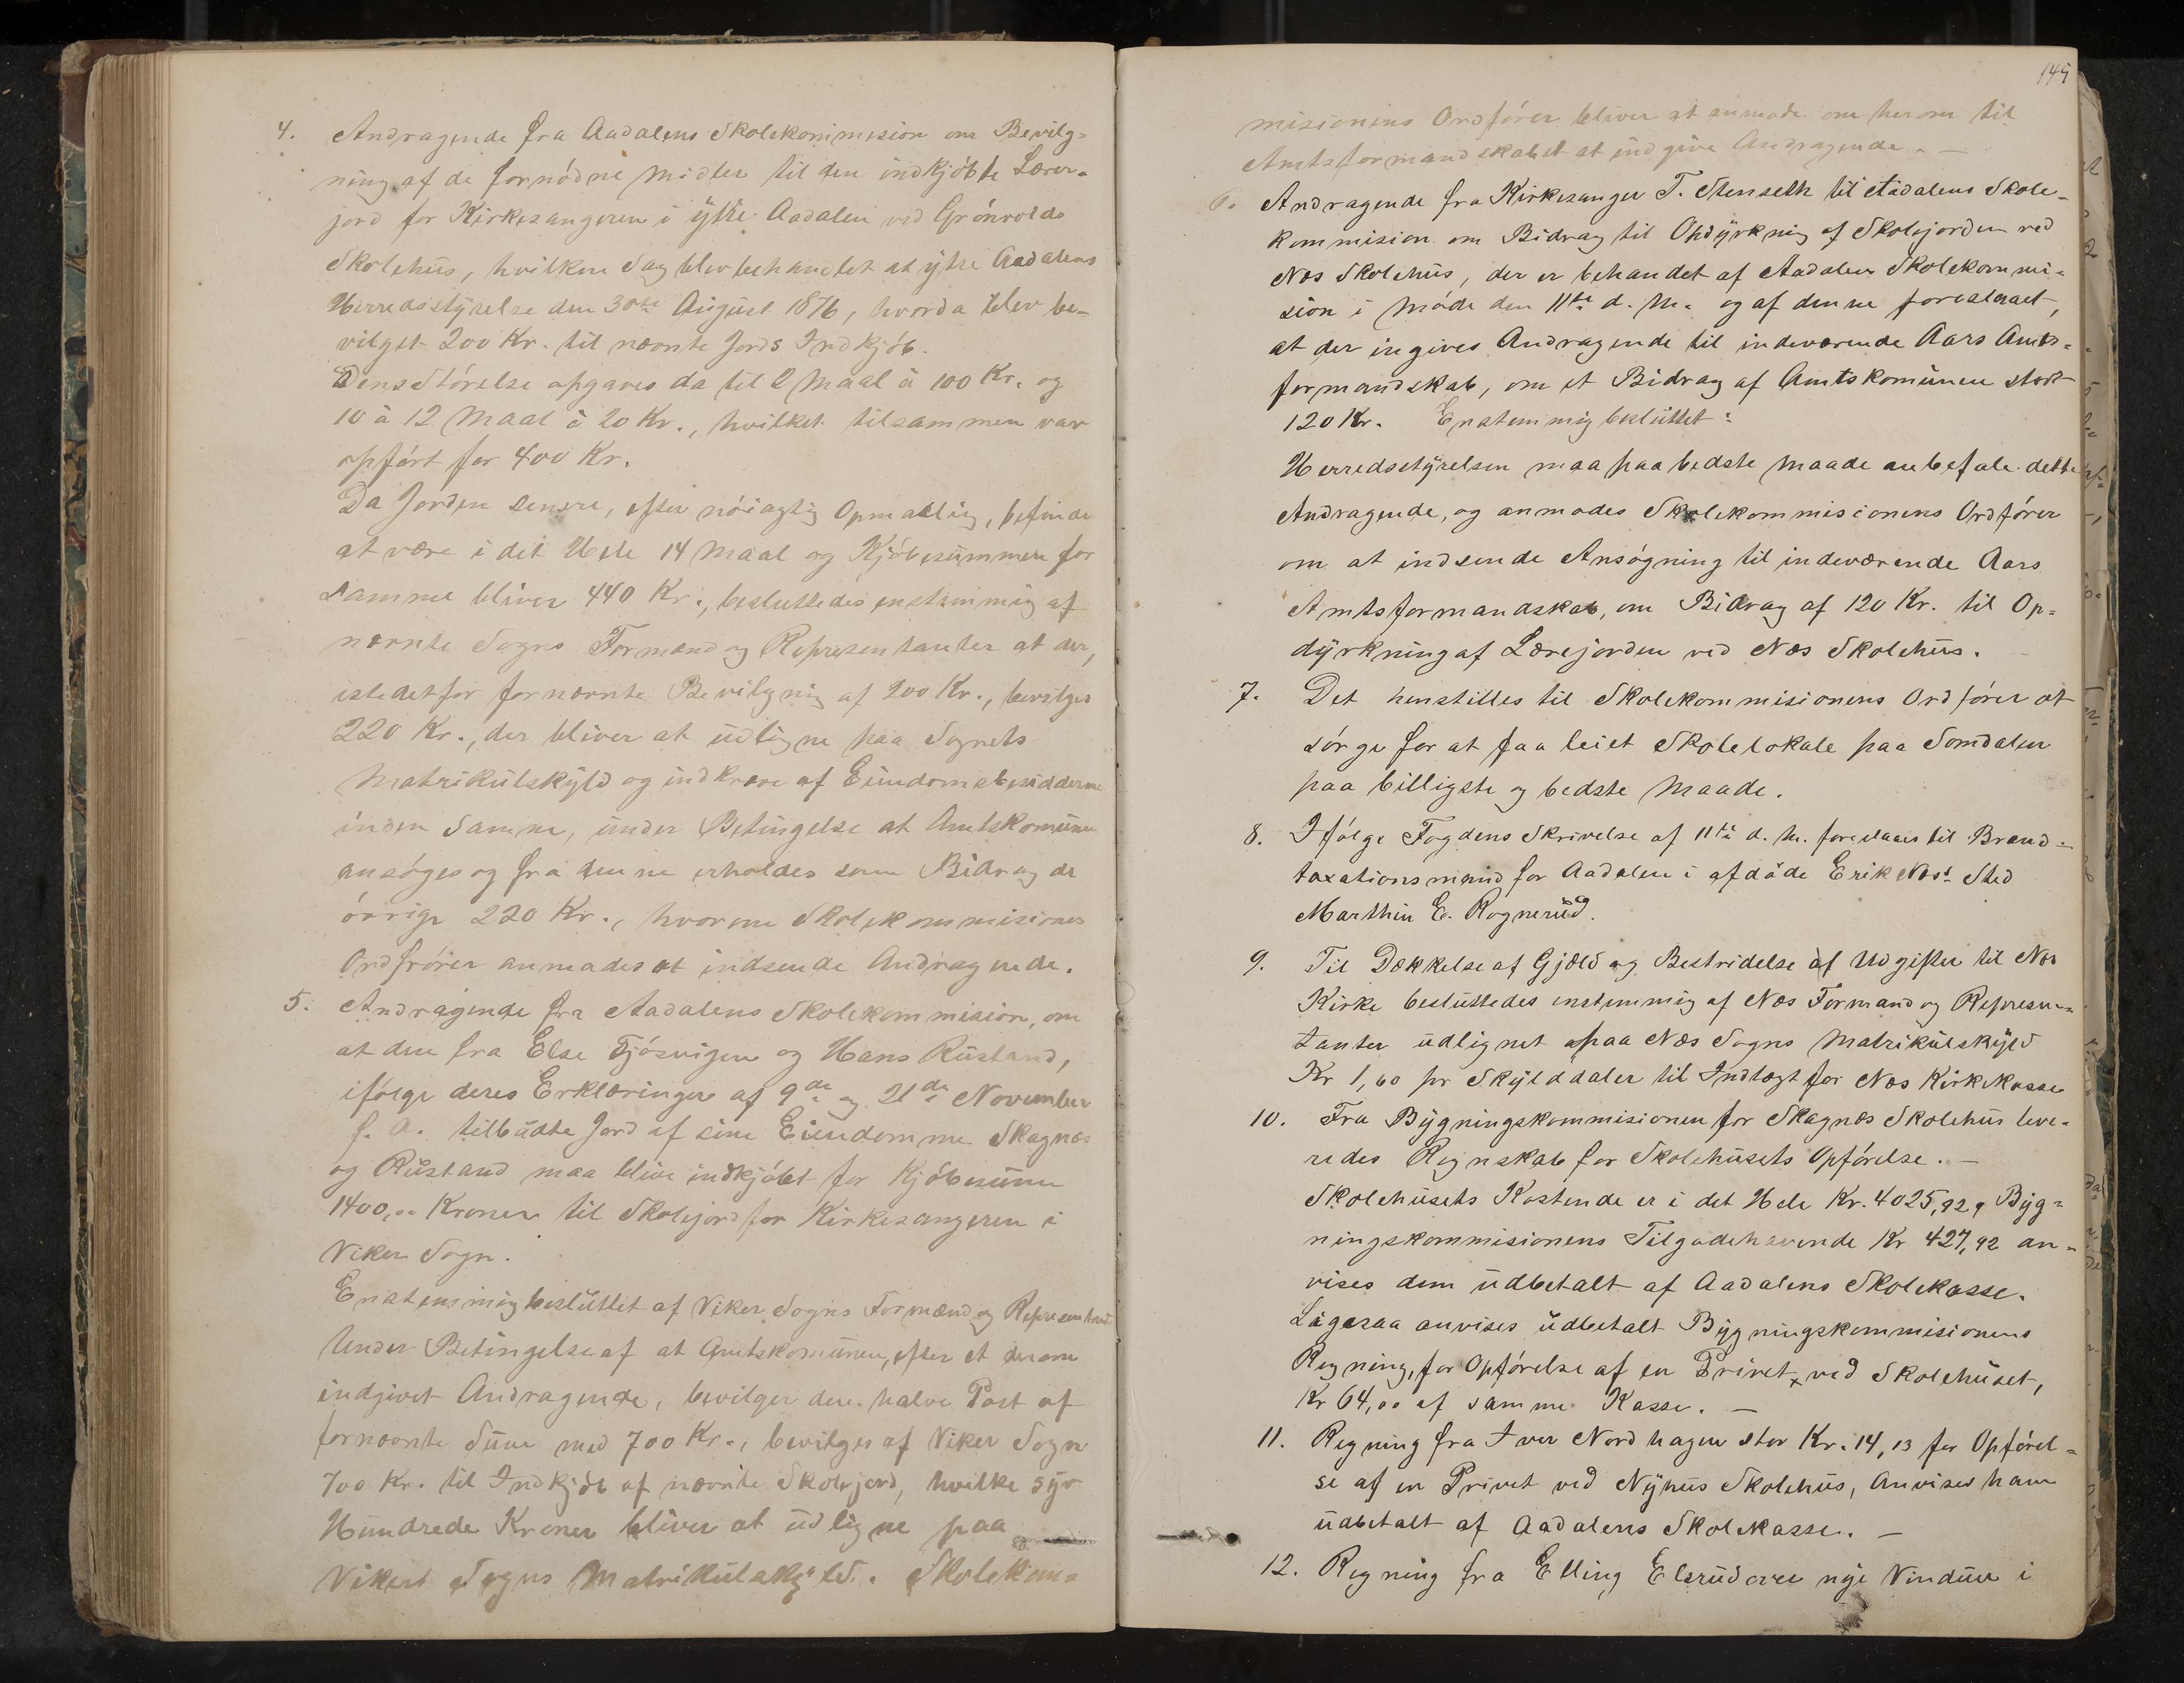 4. Andragende fra Aadalens Skolekommision om Bevilg=
ning af de fornödne Midler til den indkjöbte Lærer=
jord for Kirkesangeren i ytre Aadalen ved Grönvolds
Skolehus, hvilken Sag blev behandlet at ytre Aadalens
Herredsstyrelse den 30te August 1876, hvorda blev be=
vilget 200 Kr. til nævnte Jords Indkjöb.
Dens Störelse opgaves da til 2 Maal à 100 Kr. og
10 à 12 Maal à 20 Kr., hvilket tilsammen var
opfört for 400 Kr.
Da Jorden senere, efter nöiagtig Opmaaling, befindes
at være i det Hele 14 Maal og Kjöbesummen for
Samme bliver 440 Kr., besluttedes enstemmig af
nævnte Sogns Formænd og Repræsentanter at der,
istedetfor fornævnte Bevilgnig af 200 Kr., bevilges
220 Kr., der bliver at udligne paa Sognets
Matrikulskyld og indkræve af Eiendomsbesidderne
inden Samme, under Betingelse at Amtskomunen
ansöges og fra denne erholdes som Bidrag de
övrige 220 Kr., hvorom Skolekommisionens
Ordfrörer anmodes at indsende Andragende.
5. Andragende fra Aadalens Skolekommision, om
at den fra Else Tjösvigen og Hans Rustand,
ifölge deres Erklæringer af 9de og 21de November
f. A. tilbudte Jord af sine Eiendomme Skagnæs
og Rustand maa blive indkjöbt for Kjöbesum
1400,00 Kroner til Skolejord for Kirkesangeren i
Viker Sogn.
Enstemmig besluttet af Viker Sogns Formænd og Repræsentant
Under Betingelse af at Amtskomunen, efter et derom
indgivet Andragende, bevilger den halve Part af
fornævnte Sum med 700 Kr., bevilges af Viker Sogn
700 Kr. til Indkjöb af nævnte Skolejord, hvilke syv
Hundrede Kroner bliver at udligne paa
Vikers Sogns Matrikulskyld. Skolekom=
145
misionens Ordförer bliver at anmode om herom til
Amtsformandskabet at indgive Andragende. —
6. Andragende fra Kirkesanger T. Stenseth til Aadalens Skole=
kommision om Bidrag til Opdyrknig af Skolejorden ved
Næs Skolehus, der er behandet af Aadalen Skolekommi=
sion i Möde den 11te d. M. og af denne foreslaaet,
at der ingives Andragende til indeværende Aars Amts=
formandskab, om et Bidrag af Amtskomunen stort
120 Kr. Enstemmig besluttet:
Herredsstyrelsen maa paa bedste Maade anbefale dette
Andragende, og anmodes Skolekommisionens Ordförer
om at indsende Ansögning til indeværende Aars
Amtsformandskab, om Bidrag af 120 Kr. til Op=
dyrkning af Lærejorden ved Næs Skolehus.
7. Det henstilles til Skolekommisionens Ordförer at
sörge for at faa leiet Skolelokale paa Somdalen
paa billigste og bedste Maade.
8. Ifölge Fogdens Skrivelse af 11te d. M. foreslaaes til Brand=
taxationsmand for Aadalen i afdöde Erik Næs's Sted
Marthin E. Rognerud.
9. Til Dækkelse af Gjæld og Bestridelse af Udgifter til Næs
Kirke besluttedes enstemmig af Næs Formænd og Represen=
tanter udlignet paa Næs Sogns Matrikulskyld
Kr 1,60 pr Skylddaler til Indtægt for Næs Kirkekasse
10. Fra Bygningskommisionen for Skagnæs Skolehus leve=
redes Regnskab for Skolehusets Opförelse. —
Skolehusets Kostende er i det Hele Kr. 4025,92, Byg=
ningskommisionens Tilgodehavende Kr 427,92 an=
vises dem udbetalt af Aadalens Skolekasse.
Ligesaa anvises udbetalt Bygningskommisionens
Regning, for Opförelse af en Privet, ved Skolehuset,
Kr 64,00 af samme Kasse. —
11. Regning fra Iver Nordhagen stor Kr. 14,13 for Opförel=
se af en Privet ved Nyhus Skolehus, Anvises ham
udbetalt af Aadalens Skolekasse. —
12. Regning fra Elling Elsrud over nye Vinduer i